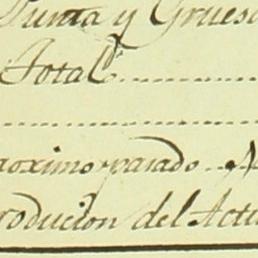 Punta y Grues
Total
roximo pasado
roducion del Actu